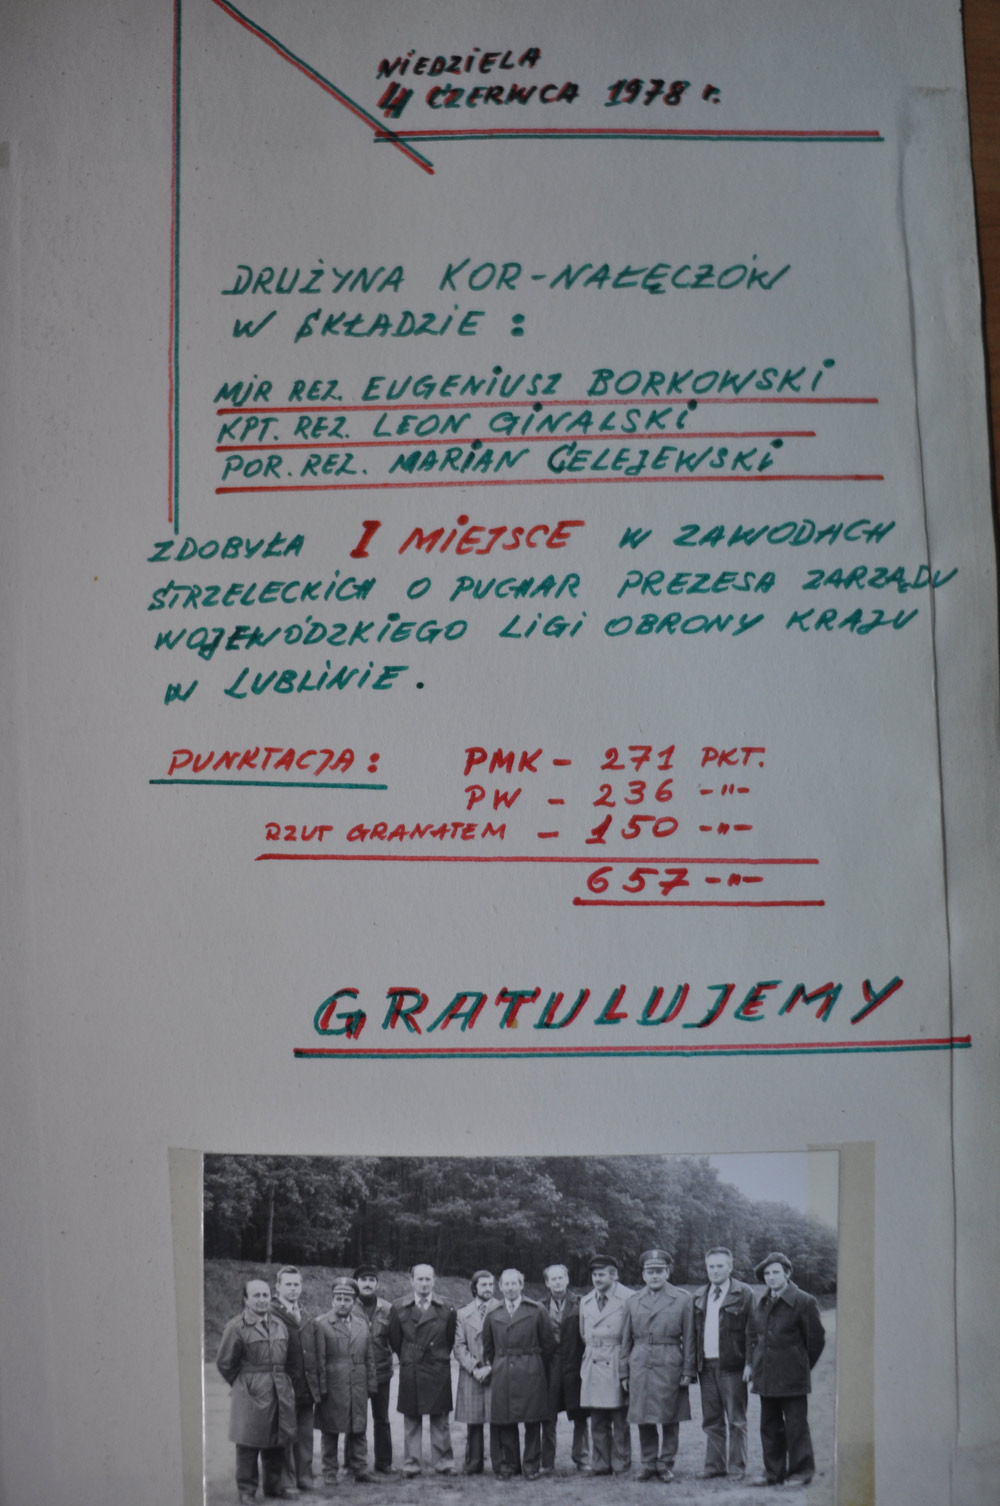 NIEDZIELA
4 CZERWCA 1978 r.
DRUŻYNA KOR-NAŁĘCZÓW
W SKŁADZIE :
MJR REZ. EUGENIUSZ BORKOWSKI
KPT. REZ. LEON GINALSKI
POR. REZ. MARIAN CELEJEWSKI
ZDOBYŁA I MIEJSCE W ZAWODACH
STRZELECKICH O PUCHAR PREZESA ZARZĄDU
WOJEWÓDZKIEGO LIGI OBRONY KRAJU
W LUBLINIE .
PUNKTACJA : PMK - 271 PKT.
PW - 236 -"-
RZUT GRANATEM - 150 -"-
657 -"-
GRATULUJEMY